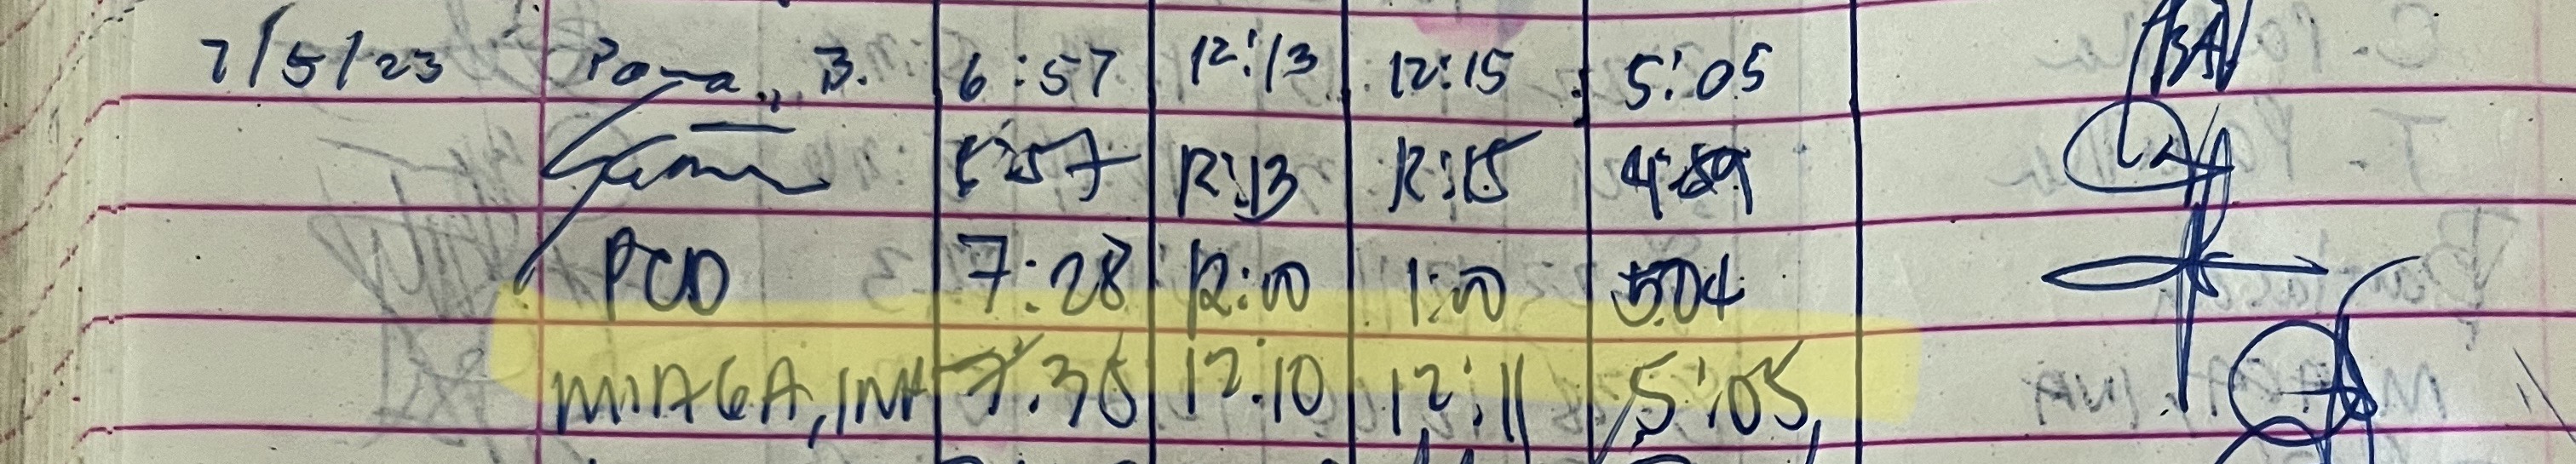 7/5/23 B. 6:57 12:13 12:15 5:05
6:57 12:13 12:15 4:59
PCD 7:28 12:00 1:00 5:04
MIAGA, INA 7:35 12:10 12:11 5:05